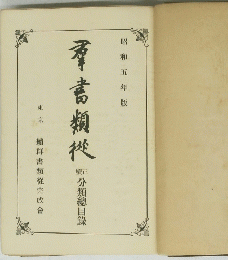 昭和五年版
羣書類從
正續分類總目録
東京 續群書類從完成會